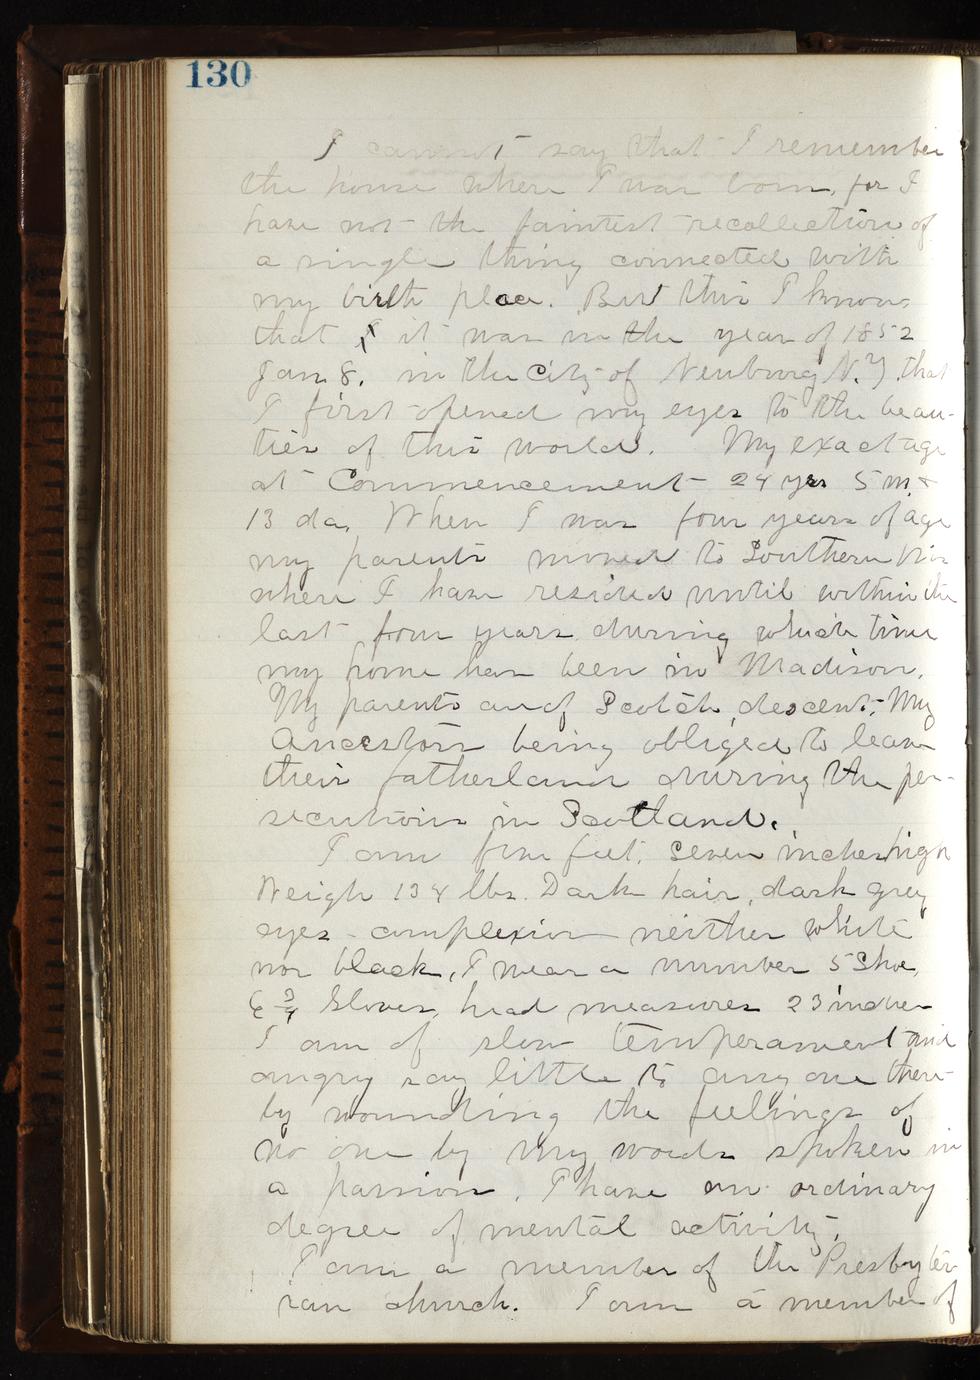 130
I cannot say that I remember
the house where I was born, for I
have not the faintest recollection of
a single thing connected with
my birth place. But this I know,
that it was in the year of 1852
Jan 8. in the City of Newburg N.Y. that
I first opened my eyes to the beau-
ties of this world. My exact age
at Commencement 24 yrs 5 m. &
13 da. When I was four years of age
my parents moved to Southern Wis
where I have resided until within the
last four years during which time
my home has been in Madison.
My parents are of Scotch descent, My
Ancestors being obliged to leave
their fatherland during the per-
secutions in Scotland.
I am five feet, seven inches high
Weigh 134 lbs. Dark hair, dark grey
eyes - complexion neither white
nor black, I wear a number 5 Shoe,
6 3/4 Gloves, head measures 23 inches
I am of slow temperament and
angry say little to any one there-
by wounding the feelings of
no one by my words spoken in
a passion. I have an ordinary
degree of mental activity.
I am a member of the Presbyter-
ian church. I am a member of